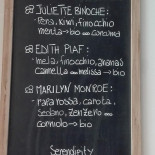 • JULIETTE BINOCHE:
- Pera, Kiwi, finocchio
menta → bio
• EDITH PIAF:
- mela, finocchio, ananas
cannella - melissa → bio
• MARILYN MONROE:
- rapa rossa, carota,
sedano, zenzero
→ bio
Serendipity